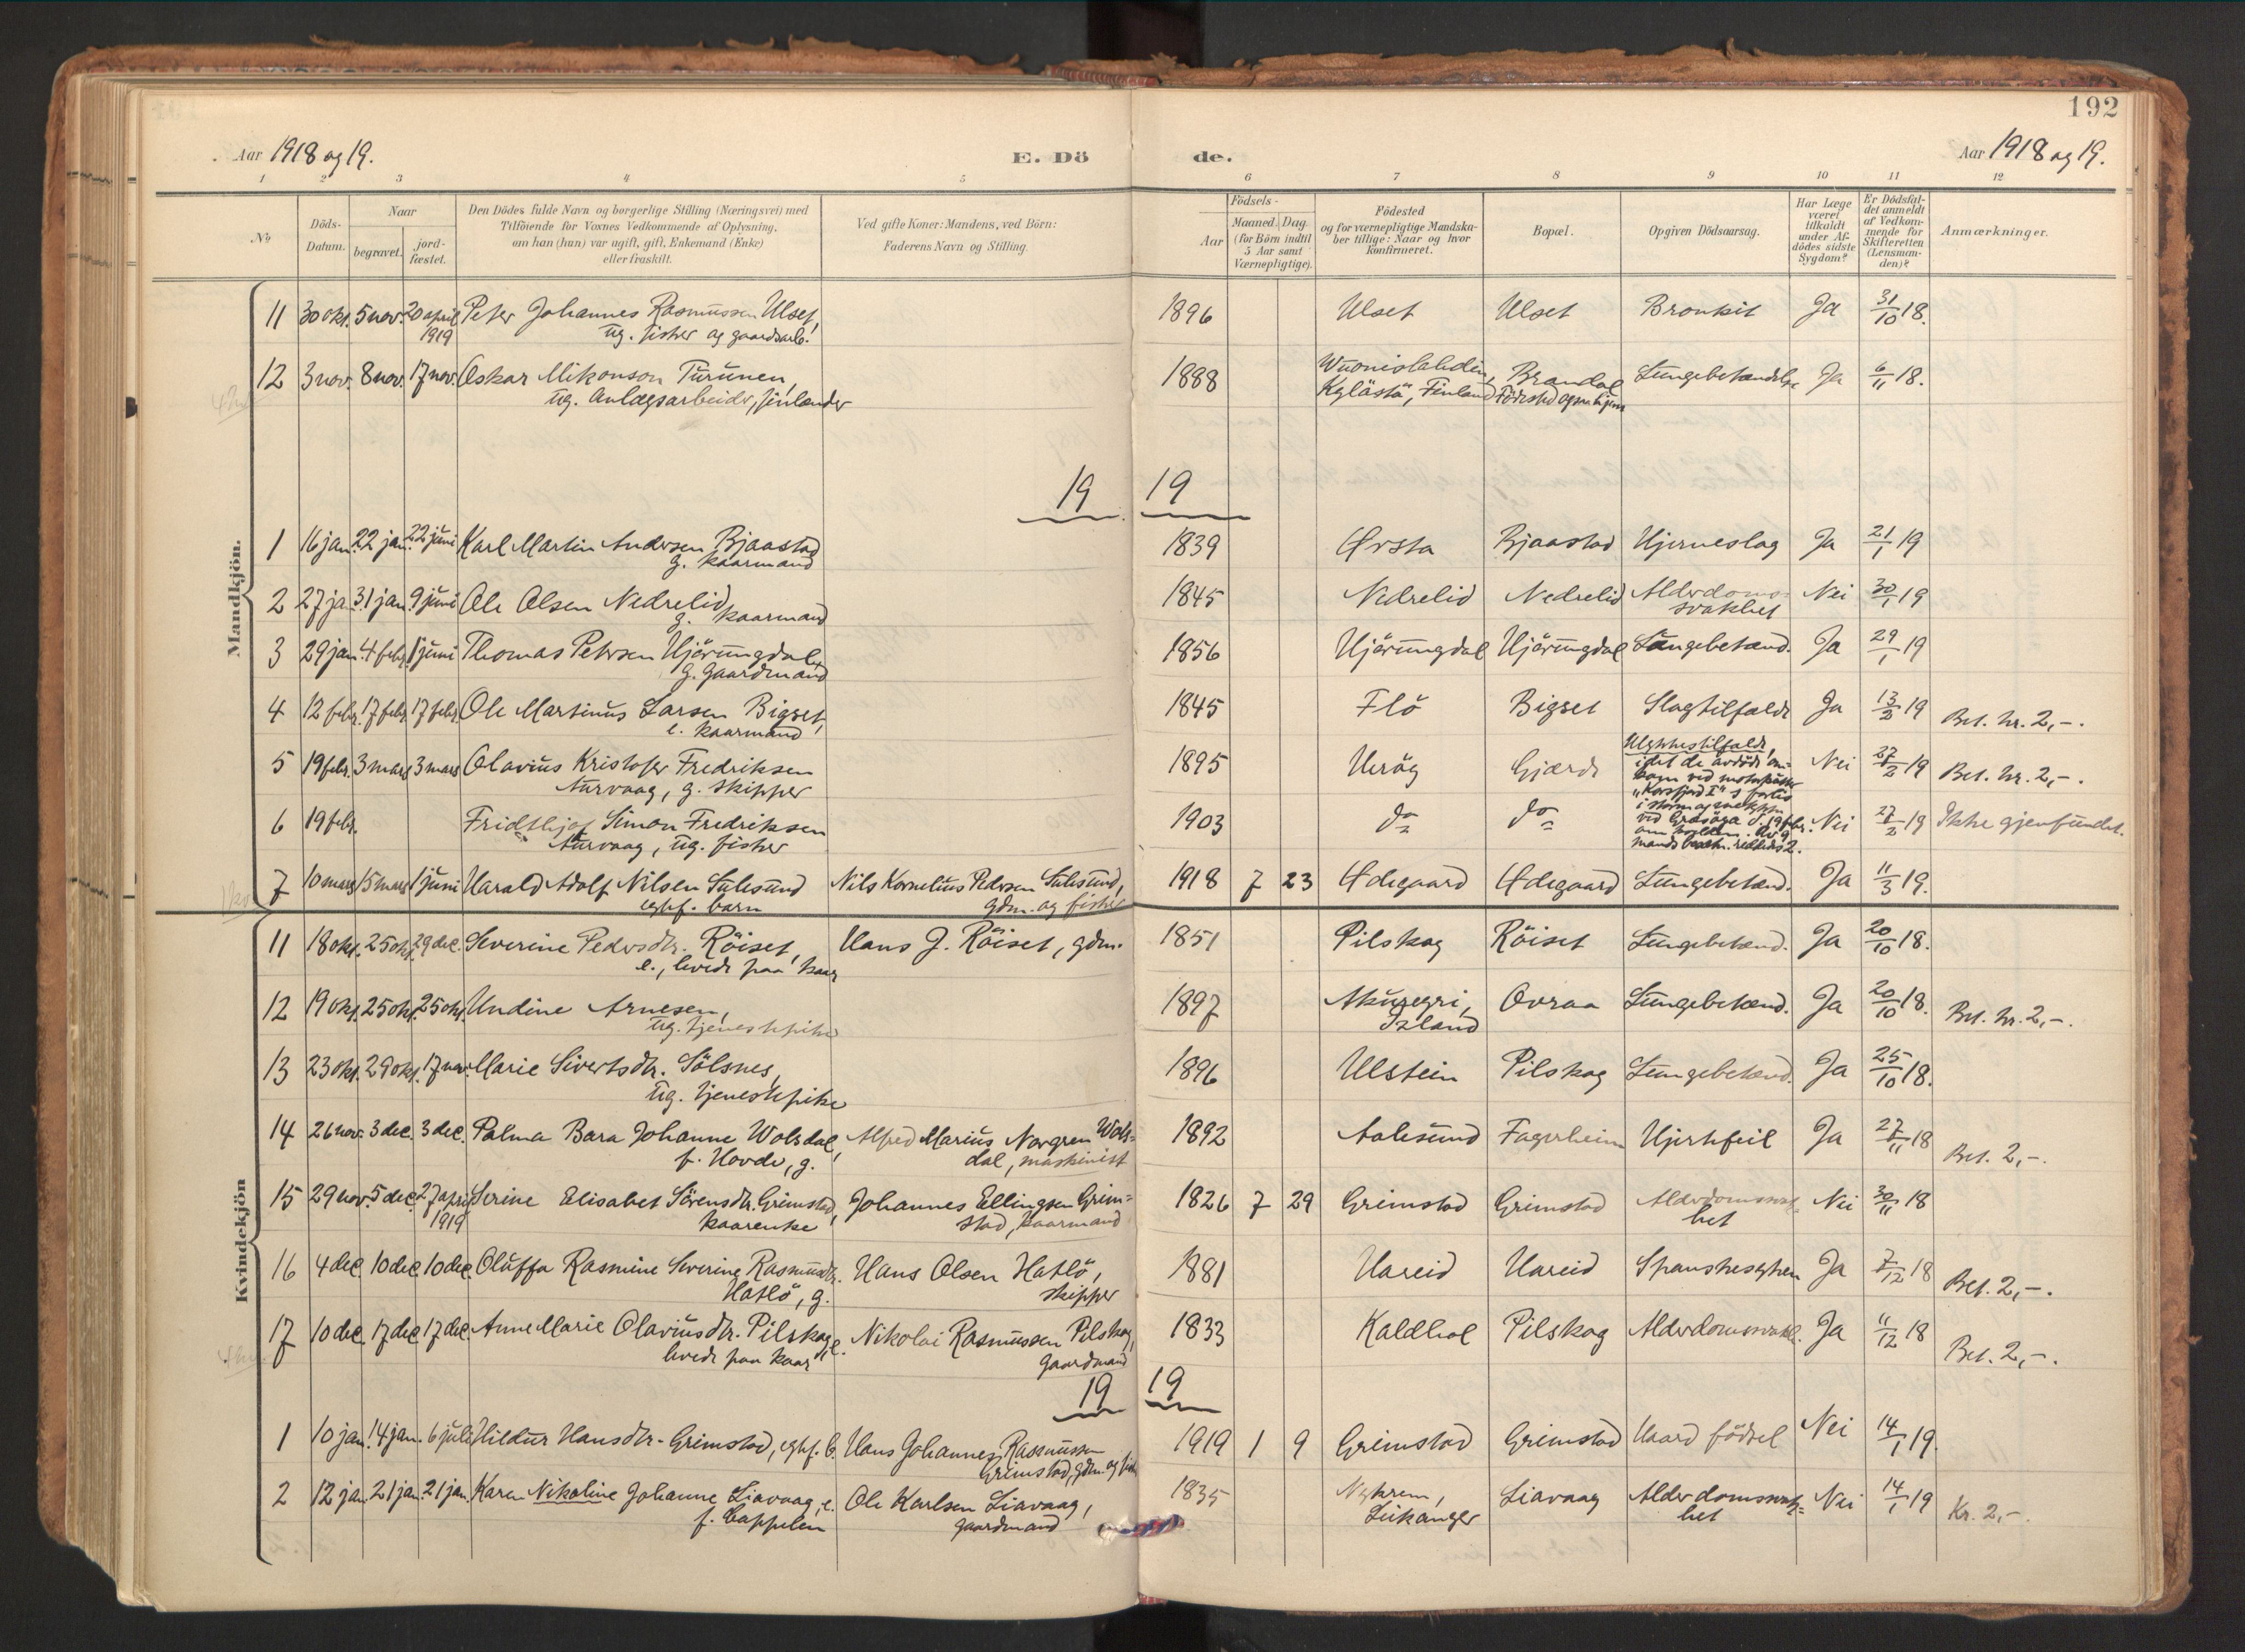 192
Aar 1918 og 19.
E. Döde.
Aar 1918 og 19.
1 2 3 4 5 6 7 8 9 10 11 12
No
Döds-Datum.
Naar
begravet.
jord-fæstet.
Den Dödes fulde Navn og borgerlige Stilling (Næringsvei) med
Tilföiende for Voxnes Vedkommende af Oplysning,
om han (hun) var ugift, gift, Enkemand (Enke)
eller fraskilt.
Ved gifte Koner: Mandens, ved Börn:
Faderens Navn og Stilling.
Födsels-
Aar
Maaned. Dag.
(for Börn indtil
5 Aar samt
Værnepligtige).
Födested
og for værnepligtige Mandska-
ber tillige: Naar og hvor
konfirmeret.
Bopæl.
Opgiven Dödsaarsag.
Har Læge
været
tilkaldt
under Af-
dödes sidste
Sygdom?
Er Dödsfal-
det anmeldt
af Vedkom-
mende for
Skifteretten
(Lensman-
den)?
Anmærkninger.
Mandkjön.
11 30 okt. 5 nov. 20 april 1919 Peter Johannes Rasmussen Ulset, ug. fisker og gaardsarb. 1896 Ulset Ulset Bronkit Ja 31/10 18.
12 3 nov. 8 nov. 17 nov. Oskar Mikonson Turunen, ug. Anlægsarbeider, finlænder 1888 Kylästä, Finland Brandal Lungebetændelse Ja 6/11 18.
19 19
1 16 jan. 22 jan. 22 juni Karl Martin Andersen Bjaastad g. kaarmand 1839 Ørsta Bjaastad Hjerneslag Ja 21/1 19
2 27 jan. 31 jan. 9 juni Ole Olsen Nedrelid, g. kaarmand 1845 Nedrelid Nedrelid Alderdoms-svakhet Nei 30/1 19
3 29 jan. 4 febr. 1 juni Thomas Petersen Hjörungdal, g. gaardmand 1856 Hjörungdal Hjörungdal Lungebetænd. Ja 29/1 19
4 12 febr. 17 febr. 17 febr. Ole Martinus Larsen Bigset, e. kaarmand 1845 Flö Bigset Slagtilfælde Ja 13/2 19 Bet. kr. 2,-.
5 19 febr. 3 mars 3 mars Olavius Kristofer Fredriksen Aurvaag, g. skipper 1895 Herög Gjærde Ulykkestilfælde, idet de avdöde om-kom ved motorkutter "Korsfjord I"s forlis Nei 27/2 19 Bet. kr. 2,-.
6 19 febr. Fridthjof Simon Fredriksen Aurvaag, ug. fisker 1903 do do Nei 27/2 19 Ikke gjenfundet.
7 10 mars 15 mars 1 juni Harald Adolf Nilsen Sulesund egtef. barn Nils Kornelius Pedersen Sulesund, gdm. og fisker 1918 7 23 Ødegaard Ødegaard Lungebetænd. Ja 11/3 19.
Kvindekjön
11 18 okt. 25 okt. 29 dec. Severine Pedersdtr. Röiset, e., levede paa kaar Hans J. Röiset, gdm. 1851 Pilskog Röiset Lungebetænd. Ja 20/10 18.
12 19 okt. 25 okt. 25 okt. Undine Arnesen, ug. tjenestepike 1897 Akureyri, Island Ovraa Lungebetænd. Ja 20/10 18. Bet. kr. 2,-.
13 23 okt. 29 okt. 17 nov. Marie Sivertsdtr. Sölsnes, ug. tjenestepike 1896 Ulstein Pilskog Lungebetænd. Ja 25/10 18.
14 26 nov. 3 dec. 3 dec. Palma Bara Johanne Wolsdal, f. Hovde, g. Alfred Marius Norgren Wols-dal, maskinist 1892 Aalesund Fagerheim Hjertefeil Ja 27/11 18 Bet. 2,-.
15 29 nov. 5 dec. 27 april 1919 Serine Elisabet Sörensdtr. Grimstad, kaarenke Johannes Ellingsen Grim-stad, kaarmand 1826 7 29 Grimstad Grimstad Alderdomssvak-het Nei 30/11 18
16 4 dec. 10 dec. 10 dec. Oluffa Rasmine Severine Rasmusdtr. Hatlö, g. Hans Olsen Hatlö, skipper 1881 Hareid Hareid Spanskesyken Ja 7/12 18 Bet. 2,-.
17 10 dec. 17 dec. 17 dec. Anne Marie Olaviusdtr. Pilskog, e. levede paa kaar Nikolai Rasmussen Pilskog, gaardmand 1833 Kaldhol Pilskog Alderdomssvakh. Ja 11/12 18 Bet. 2,-.
19 19
1 10 jan. 14 jan. 6 juli Hildur Hansdtr. Grimstad, egtef. b. Hans Johannes Rasmussen Grimstad, gdm. og fisk. 1919 1 9 Grimstad Grimstad Haard födsel Nei 14/1 19.
2 12 jan. 21 jan. 21 jan. Karen Nikoline Johanne Liavaag, e. f. Cappelen Ole Karlsen Liavaag, gaardmand 1835 Nykrem, Leikanger Liavaag Alderdomssvak-het Nei 14/1 19 Kr. 2,-.